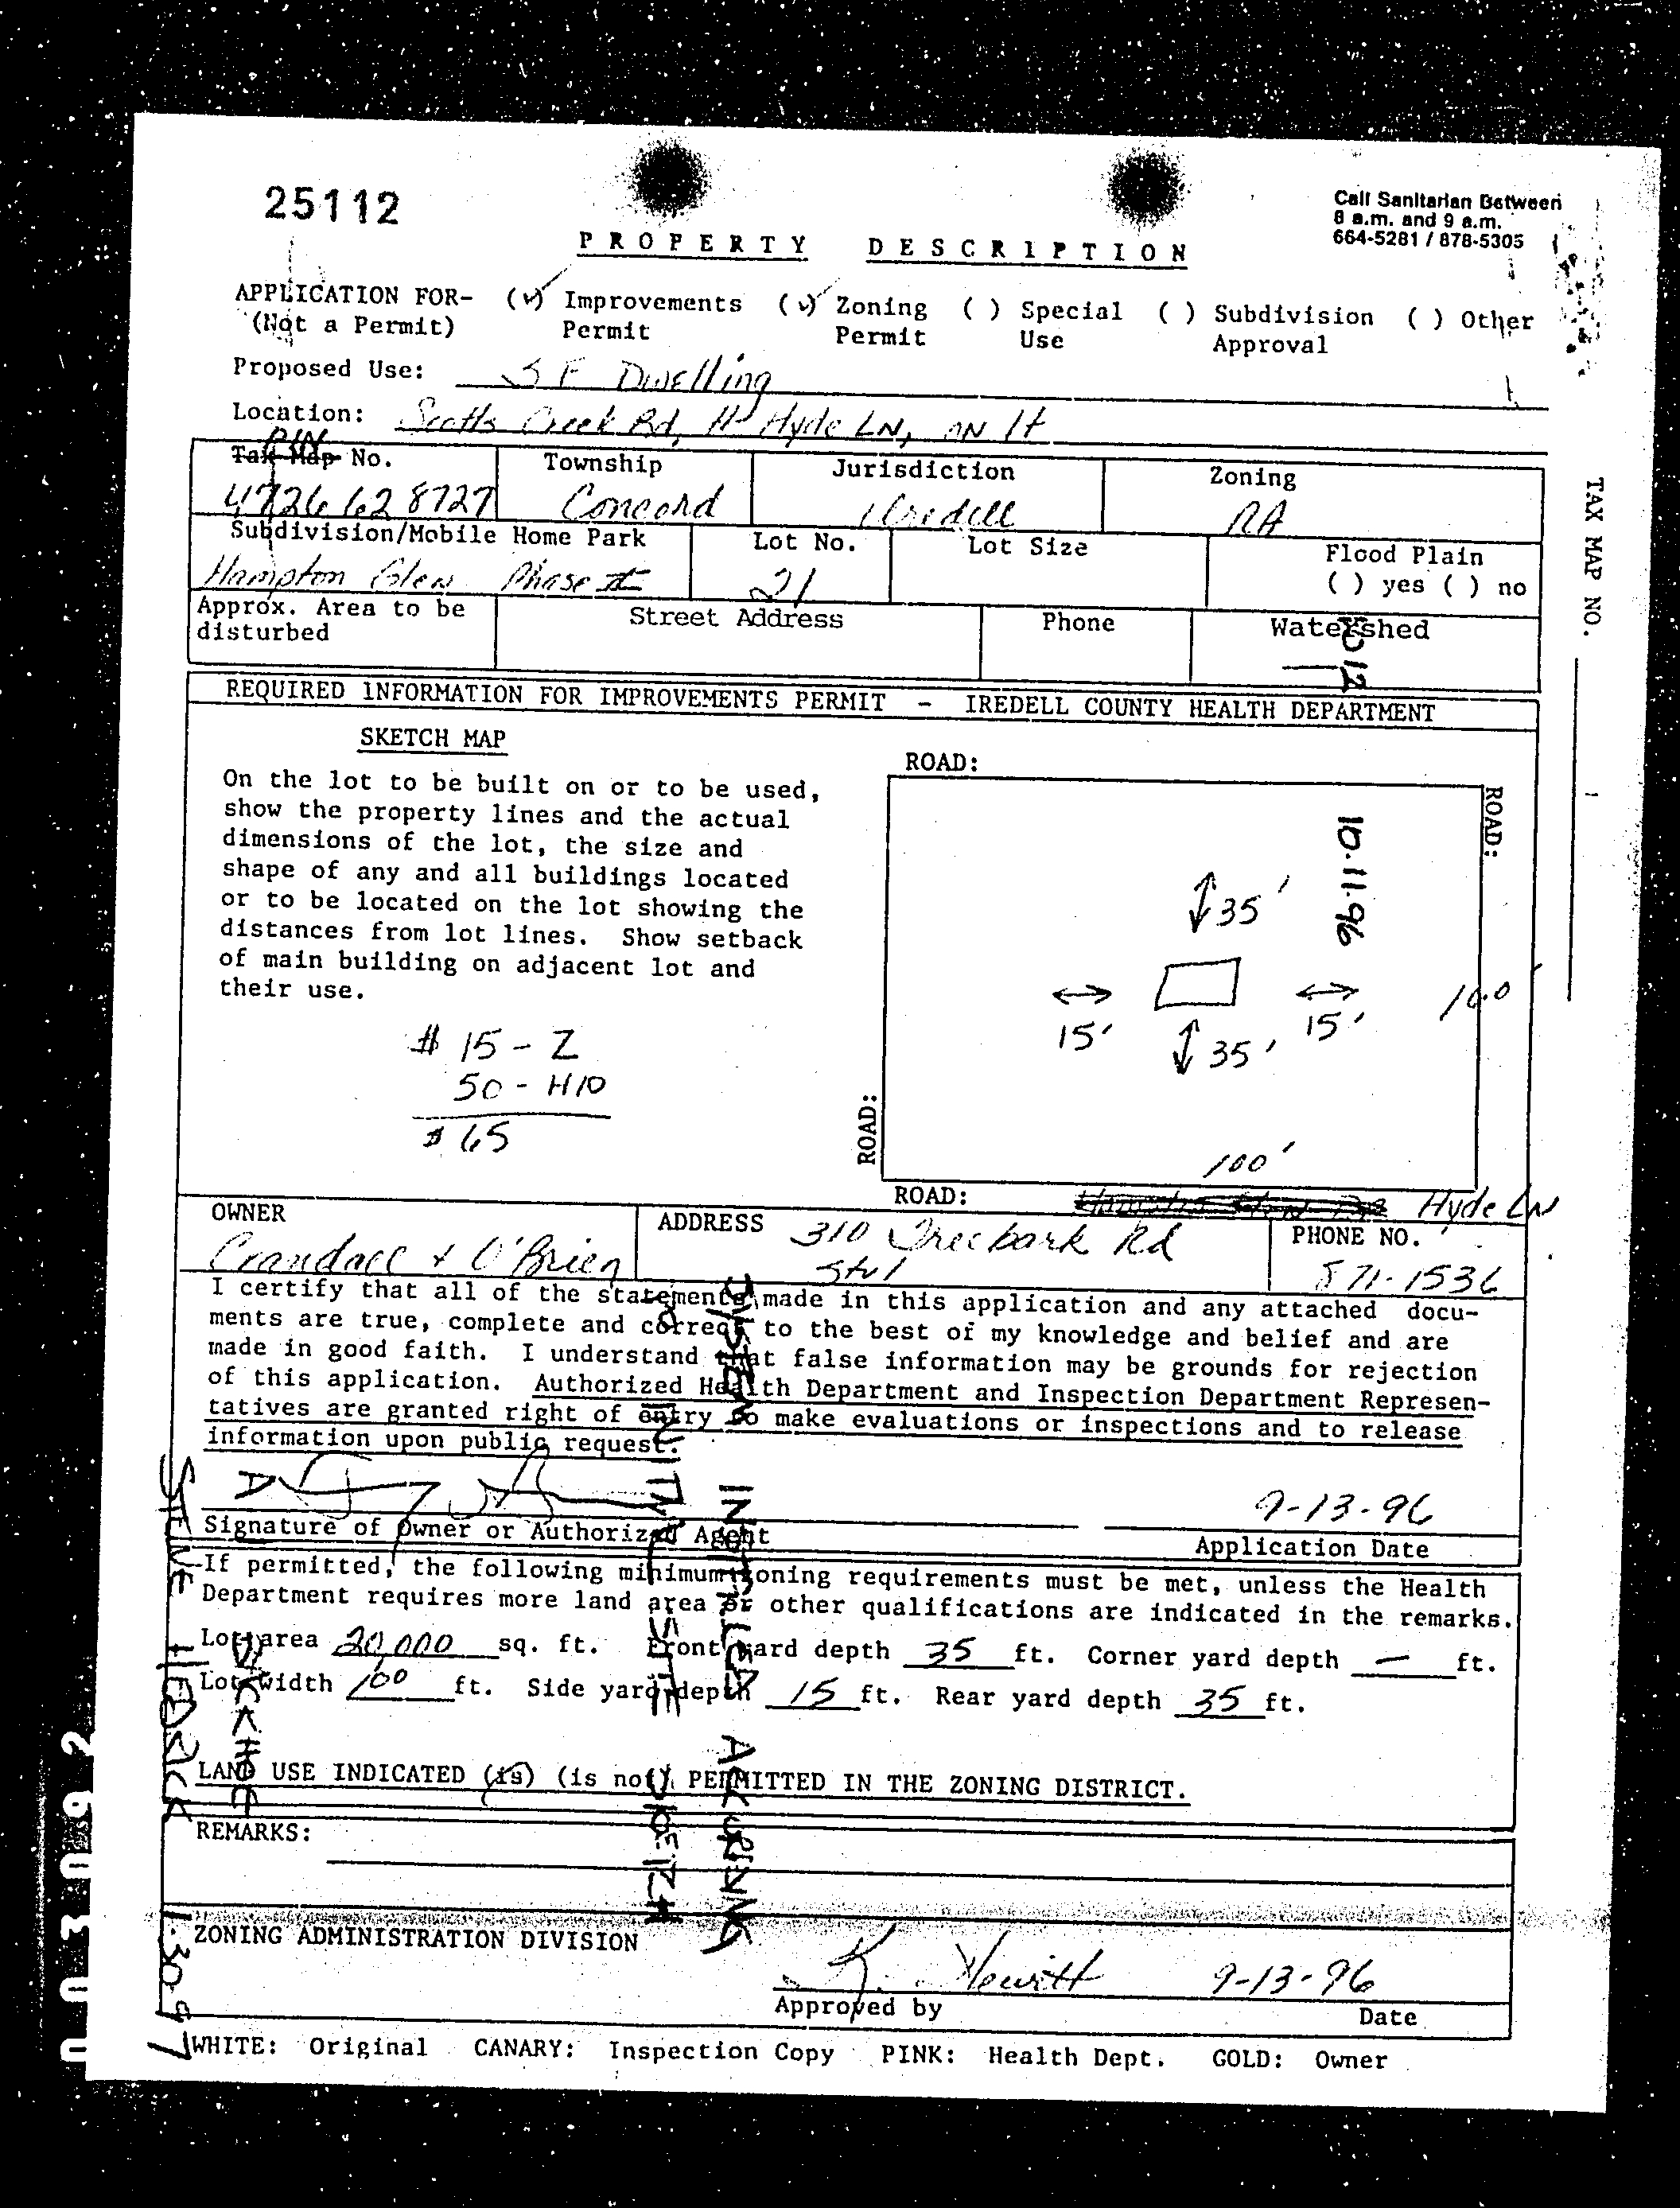 25112
Call Sanitarian Between
8 a.m. and 9 a.m.
664-5281 / 878-5305
PROPERTY DESCRIPTION
APPLICATION FOR- (✓) Improvements (✓) Zoning ( ) Special ( ) Subdivision ( ) Other
(Not a Permit) Permit Permit Use Approval
Proposed Use: SF Dwelling
Location: Scotts Creek Rd, Hyde LN, ON lt
PIN
Tax Map No. Township Jurisdiction Zoning
4726628727 Concord Iredell RA
Subdivision/Mobile Home Park Lot No. Lot Size Flood Plain
Hampton Glen Phase II 21 ( ) yes ( ) no
Approx. Area to be Street Address Phone Watershed
disturbed
TAX MAP NO.
REQUIRED INFORMATION FOR IMPROVEMENTS PERMIT - IREDELL COUNTY HEALTH DEPARTMENT
SKETCH MAP
On the lot to be built on or to be used,
show the property lines and the actual
dimensions of the lot, the size and
shape of any and all buildings located
or to be located on the lot showing the
distances from lot lines. Show setback
of main building on adjacent lot and
their use.
# 15 - Z
50 - H10
$ 65
ROAD:
ROAD:
10.11.96
35'
15'
15'
35'
100
100'
ROAD:
ROAD: Hyde LN
OWNER ADDRESS 310 Treebark Rd PHONE NO.
Crandall & O'Brien Stvl 871-1536
I certify that all of the statements made in this application and any attached docu-
ments are true, complete and correct to the best of my knowledge and belief and are
made in good faith. I understand that false information may be grounds for rejection
of this application. Authorized Health Department and Inspection Department Represen-
tatives are granted right of entry to make evaluations or inspections and to release
information upon public request.
9-13-96
Signature of Owner or Authorized Agent Application Date
If permitted, the following minimum zoning requirements must be met, unless the Health
Department requires more land area or other qualifications are indicated in the remarks.
Lot area 20,000 sq. ft. Front yard depth 35 ft. Corner yard depth — ft.
Lot width 100 ft. Side yard depth 15 ft. Rear yard depth 35 ft.
LAND USE INDICATED (is) (is not) PERMITTED IN THE ZONING DISTRICT.
REMARKS:
SYSTEM INSTALLED ACCORDING
TO INITIAL SITE SKETCH
BACKHOE
STEVE HEDRICK 1-30-97
ZONING ADMINISTRATION DIVISION
K. Hewitt 9-13-96
Approved by Date
WHITE: Original CANARY: Inspection Copy PINK: Health Dept. GOLD: Owner